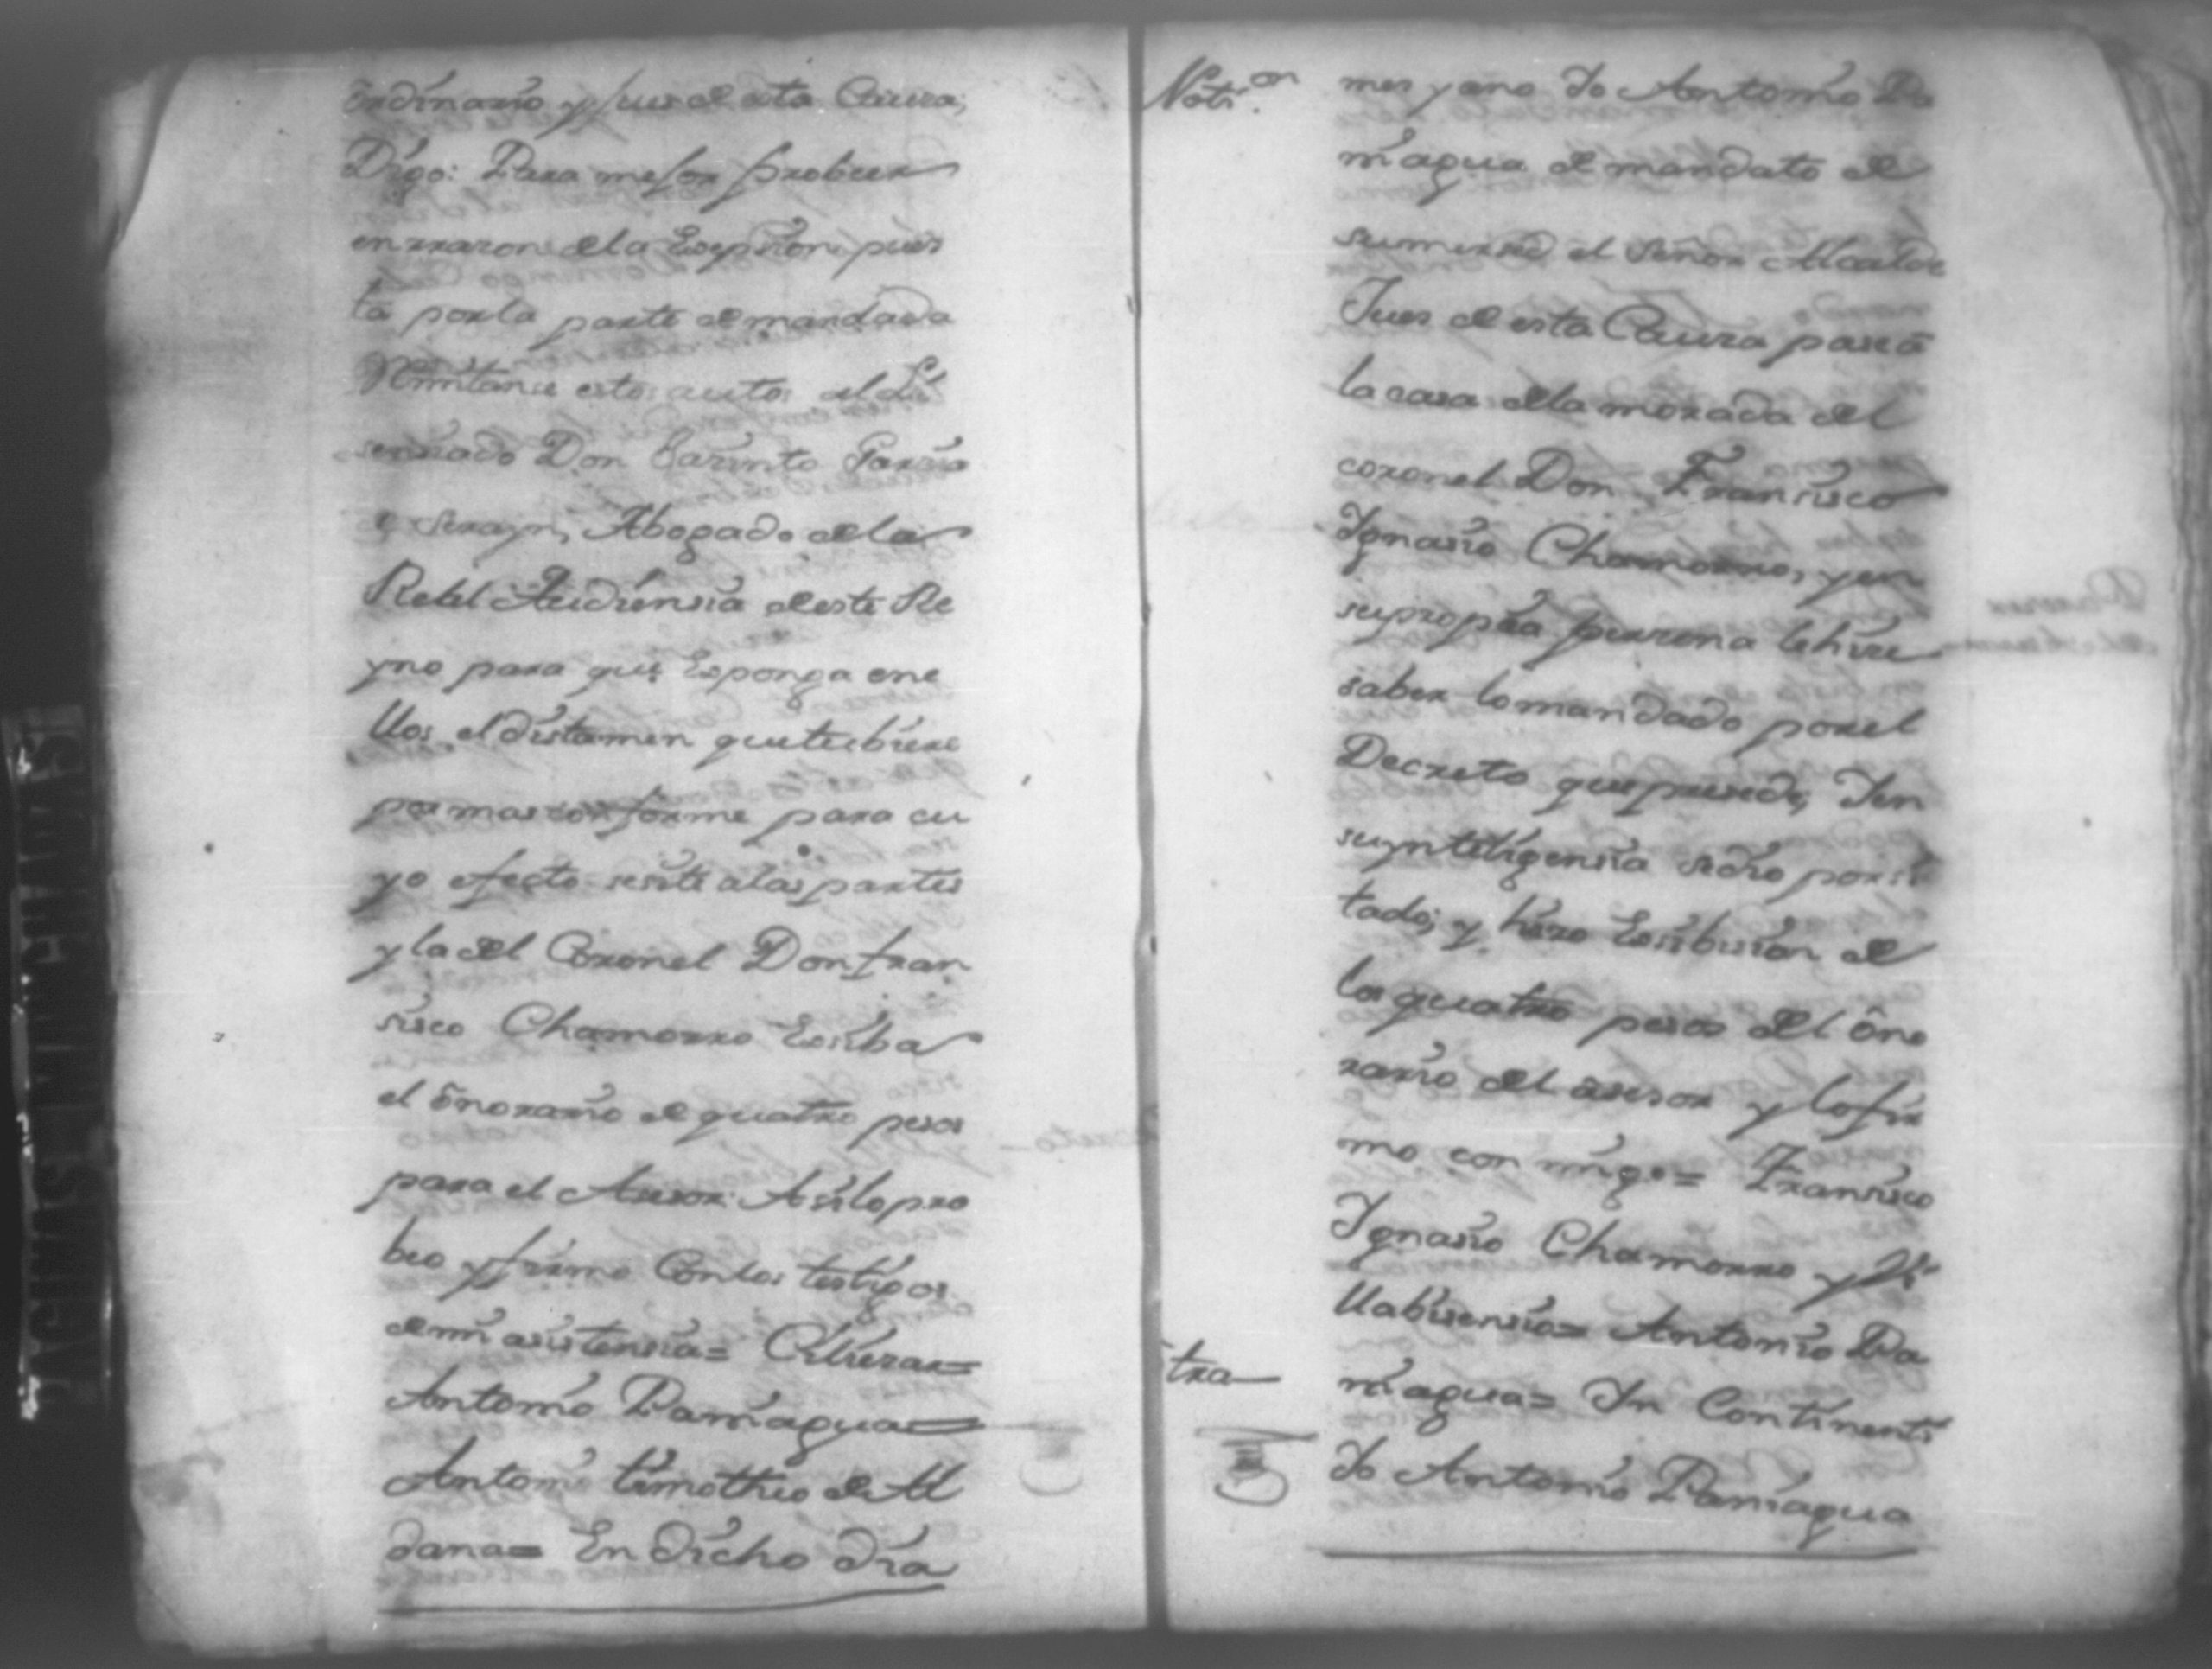 ordinario y Jues de esta Causa,
Digo: Para mejor probeer
en rrazon dela Esepsion pues
ta por la parte demandada
Rimitanse estos autos al Li
sensiado Don Jasinto Garsia
Abogado de la
Reael Audiensia de este Re
yno para que Esponga ene
llos el distamen que tubiere
por mas conforme para cu
yo efecto sesite alas partes
y la del Coronel Don fran
sisco Chamorro Esiba
el õnorario de quatro pesos
para el Asesor: Asilo pro
beo y firmo Con los testigos
de mi asistensia= Cilieza=
Antonio Paniagua=
Antonio timotheo de Al
dana= En dicho dia
Noti.on
mes y ano Yo Antonio Pa
niagua de mandato de
sumersed el Señor Alcalde
Jues de esta Causa pasé a
la casa dela morada del
coronel Don Fransisco
Ygnasio Chamorro, y en
supropia persona le hise
saber lo mandado por el
Decreto que presede, Y en
suynteligensia sedio por si
tado; y hizo Essibision de
los quatro pesos del õno
rario del asesor y lo fir
mo con migo= Fransisco
Ygnasio Chamorro y Vi
llabisensio= Antonio Pa
tra
niagua= Yn Continenti
Yo Antonio Paniagua